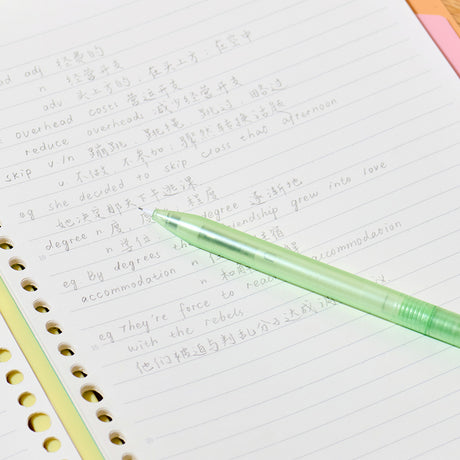 ad adj 经费的
n 经营开支
adv 头上方的, 在头上方; 在空中
overhead costs 营运开支
reduce overheads 减少经营开支
skip v/n 蹦跳, 跳绳, 跳过, 略过
v 不做, 不参加; 骤然转换话题
eg she decided to skip class that afternoon
她决定那天下午逃课
degree n 度, 程度
n 学位 degree 逐渐地
eg By degrees friendship grew into love
accommodation n
n 和解
eg They're force to accommodation
with the rebels
他们被迫与判乱分子达成 议